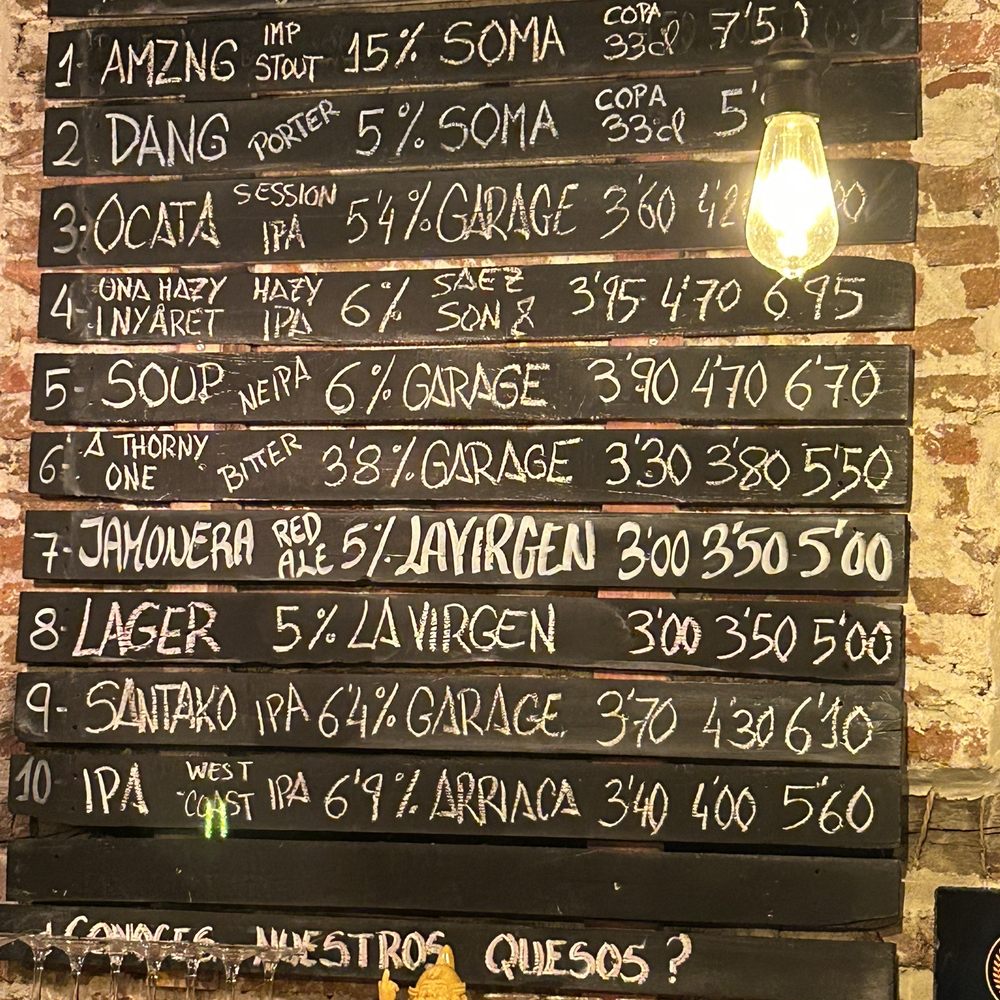 1 AMZNG IMP STOUT 15% SOMA COPA 33cl 7'5
2 DANG PORTER 5% SOMA COPA 33cl 5'
3- OCATA SESSION IPA 5'4% GARAGE 3'60
4- UNA HAZY I NYÀRET HAZY IPA 6% SAEZ SON 3'95 4'70 6'95
5- SOUP NEIPA 6% GARAGE 3'90 4'70 6'70
6- A THORNY ONE BITTER 3'8% GARAGE 3'30 3'80 5'50
7- JAMONERA RED ALE 5% LA VIRGEN 3'00 3'50 5'00
8- LAGER 5% LA VIRGEN 3'00 3'50 5'00
9- SANTAKO IPA 6'4% GARAGE 3'70 4'30 6'10
10 IPA WEST COAST IPA 6'9% ARRIACA 3'40 4'00 5'60
¿CONOCES NUESTROS QUESOS?